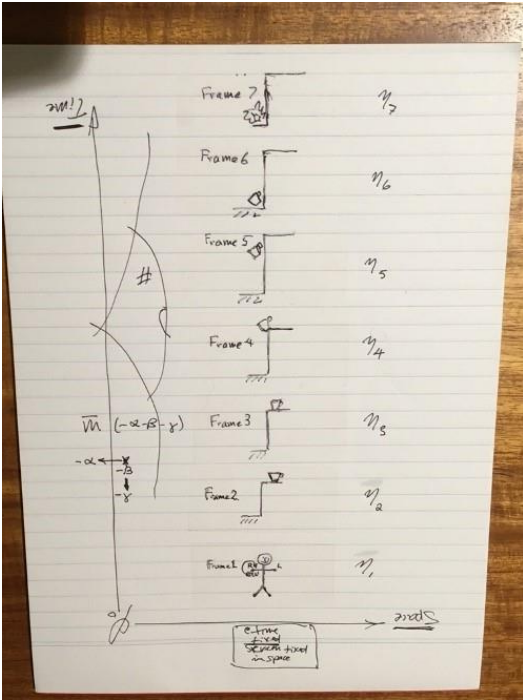 Time
Frame 7
η₇
Frame 6
η₆
Frame 5
η₅
#
Frame 4
η₄
m̅ (-α-β-γ)
Frame 3
η₃
-α
-β
-γ
Frame 2
η₂
Frame 1
L
η₁
Space
fixed
fixed
in space